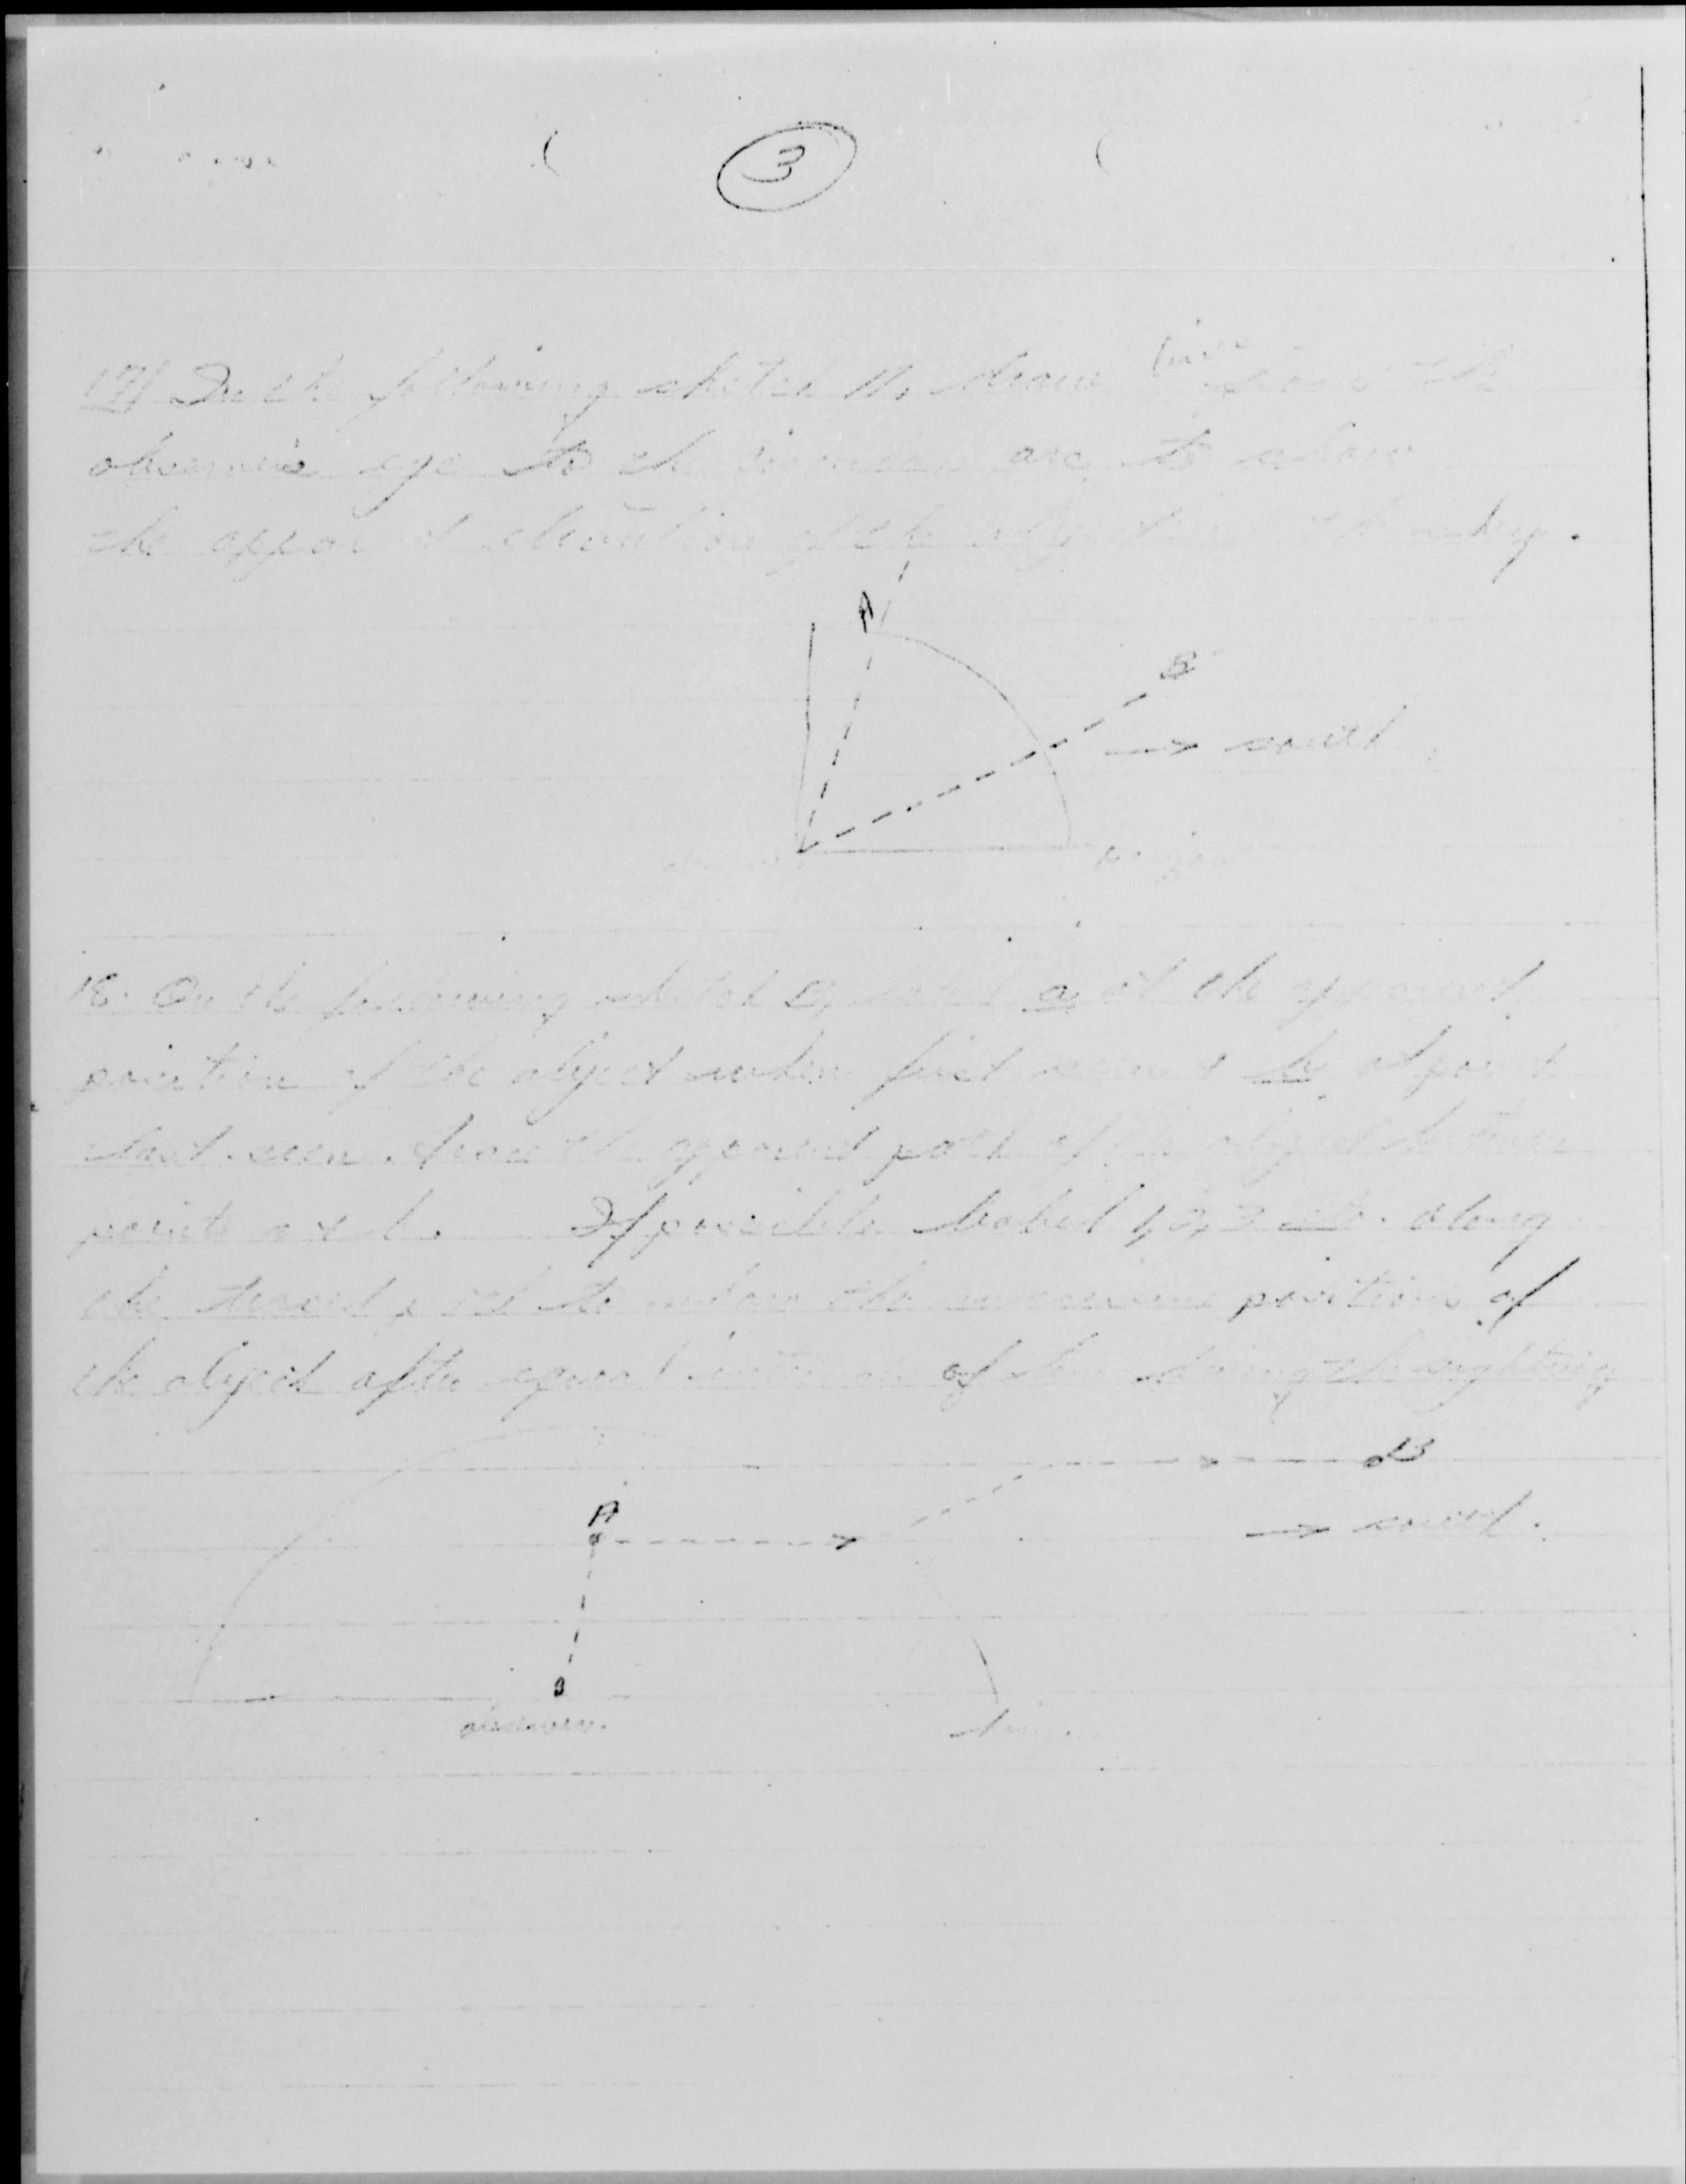 3
17) In the following sketch A, draw lines from the
observer's eye to the circular arc to show
the apparent elevation of the object in the sky.
A
B
→ south
horizon
18. On the following sketch B, a at the apparent
position of the object when first seen & b at point
last seen. trace the apparent path of the object between
points a & b. If possible label 1, 2, 3 etc. along
the traced path to show the successive positions of
the object after equal intervals of time during the sighting
B
A
→ south.
observer.
horizon